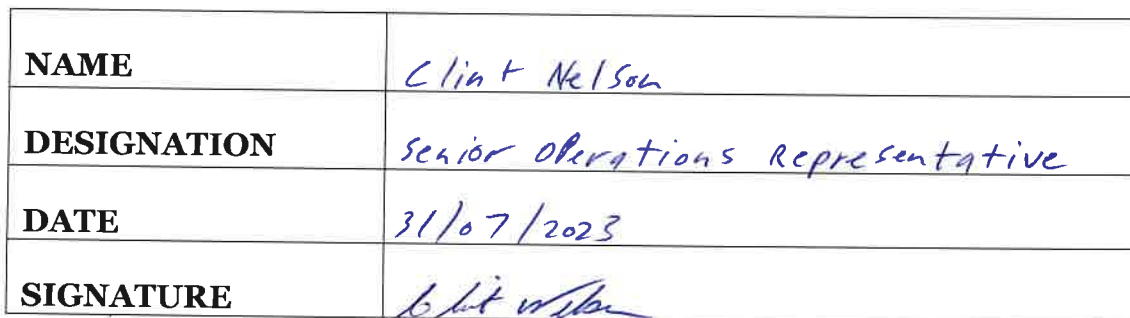 NAME Clint Nelson
DESIGNATION Senior Operations Representative
DATE 31/07/2023
SIGNATURE